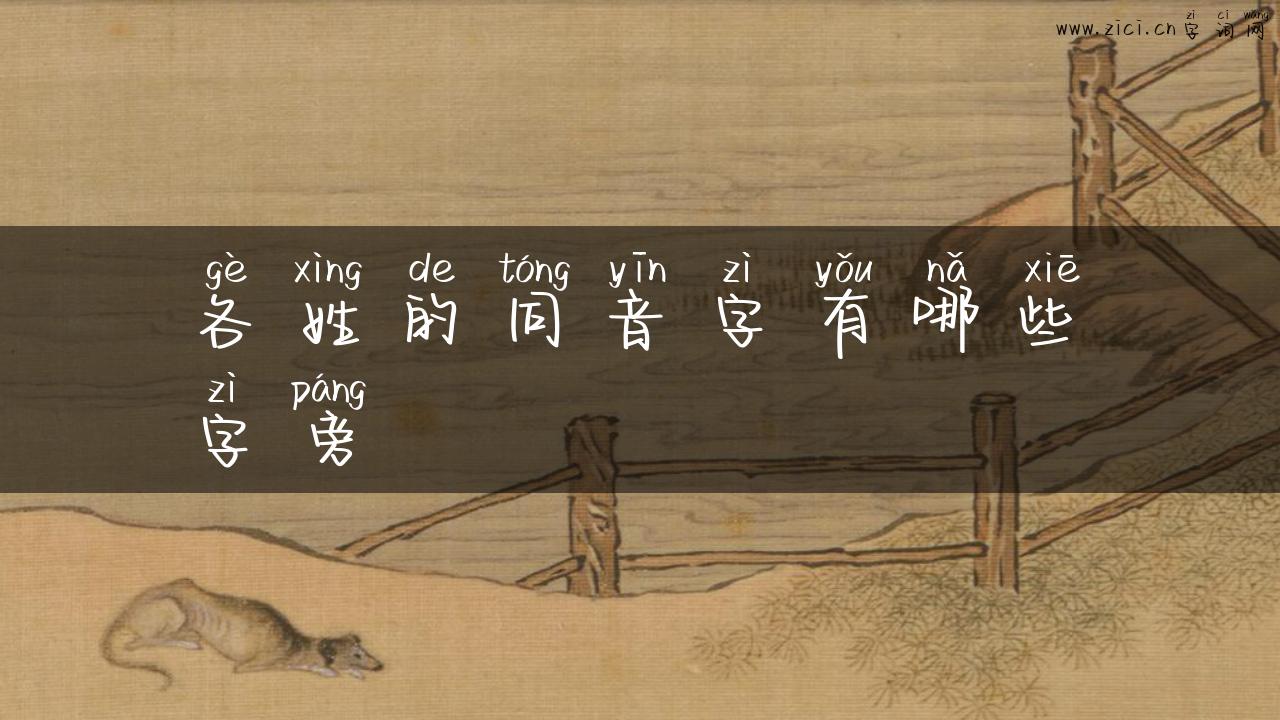 zì cí wǎng
www.zici.cn 字 词 网
gè xìng de tóng yīn zì yǒu nǎ xiē
各 姓 的 同 音 字 有 哪 些
zì páng
字 旁